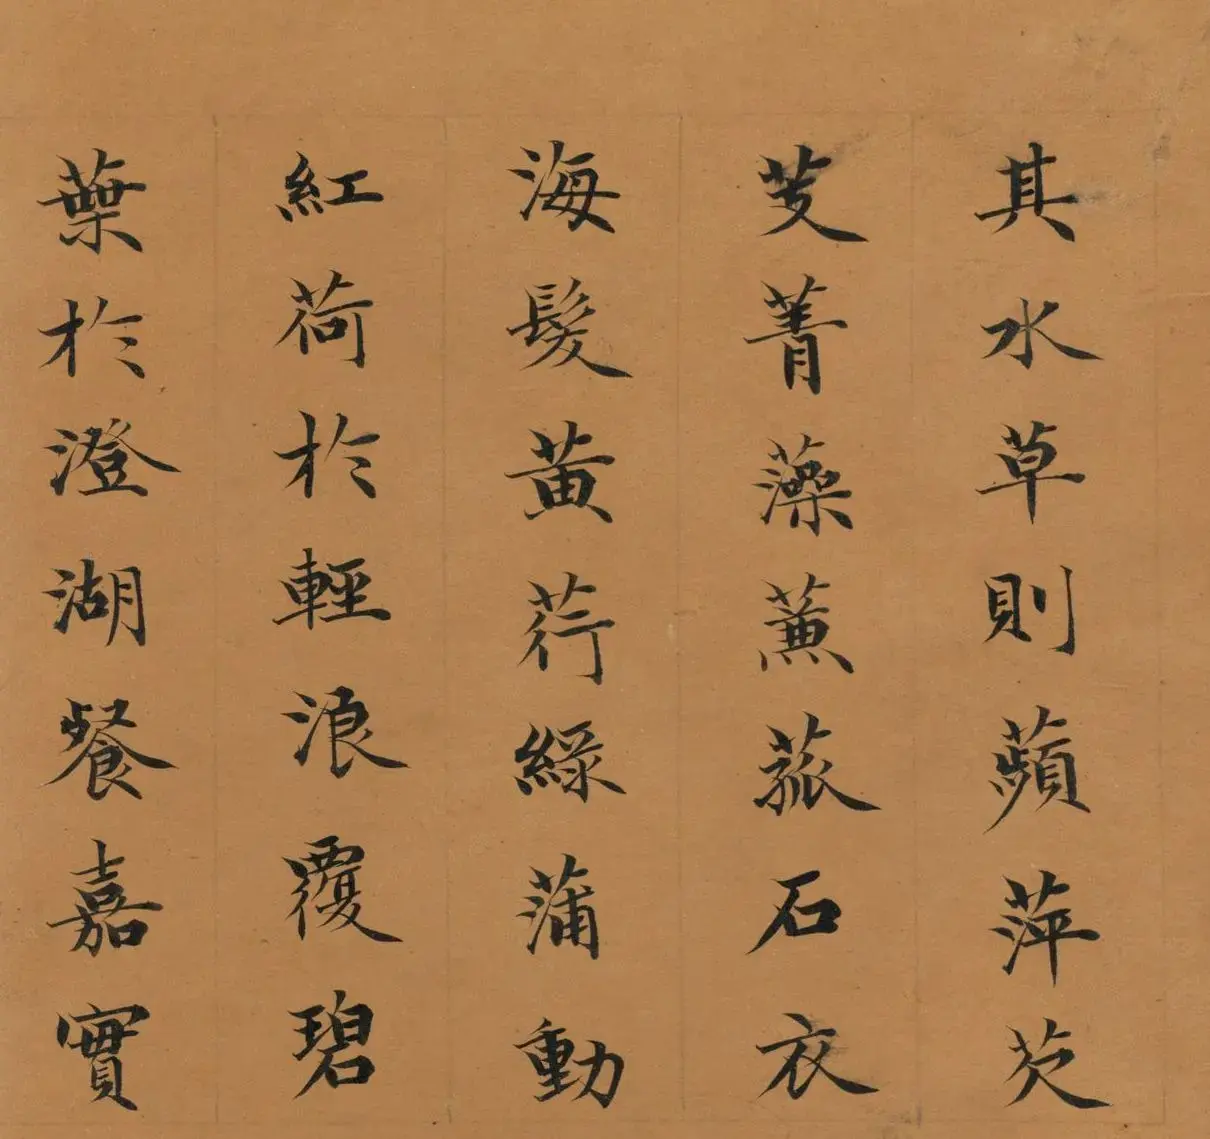 其水草則蘋萍芡
芰菁藻蒹菰石衣
海髮黃荇綠蒲動
紅荷於輕浪覆碧
葉於澄湖餐嘉實